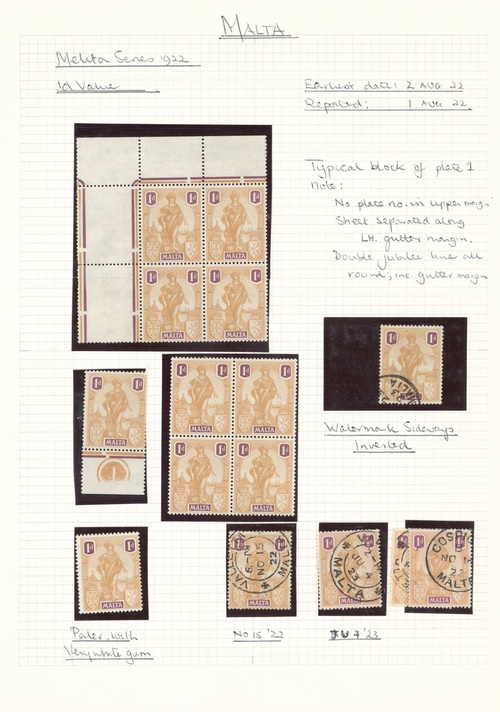 MALTA
Melita Series 1922
1d Value
Earliest date: 2 AUG 22
Reported: 1 AUG 22.
Typical block of plate 1
note:
No plate no. in upper margin
Sheet separated along
LH. gutter margin.
Double jubilee line all
round, inc. gutter margin
1d 1d 1d 1d
MALTA MALTA
1d 1d 1d 1d
MALTA MALTA
1d 1d
MALTA
1
1d 1d 1d 1d
MALTA MALTA
1d 1d 1d 1d
MALTA MALTA
1d 1d
Watermark Sideways
Inverted
1d 1d
MALTA
NO 15
22
MALTA
JU 4
23
MALTA
COSPIC
NO 1
22
MALTA
Paler, with
Very white gum
NO 15 '22
JU 4 '23